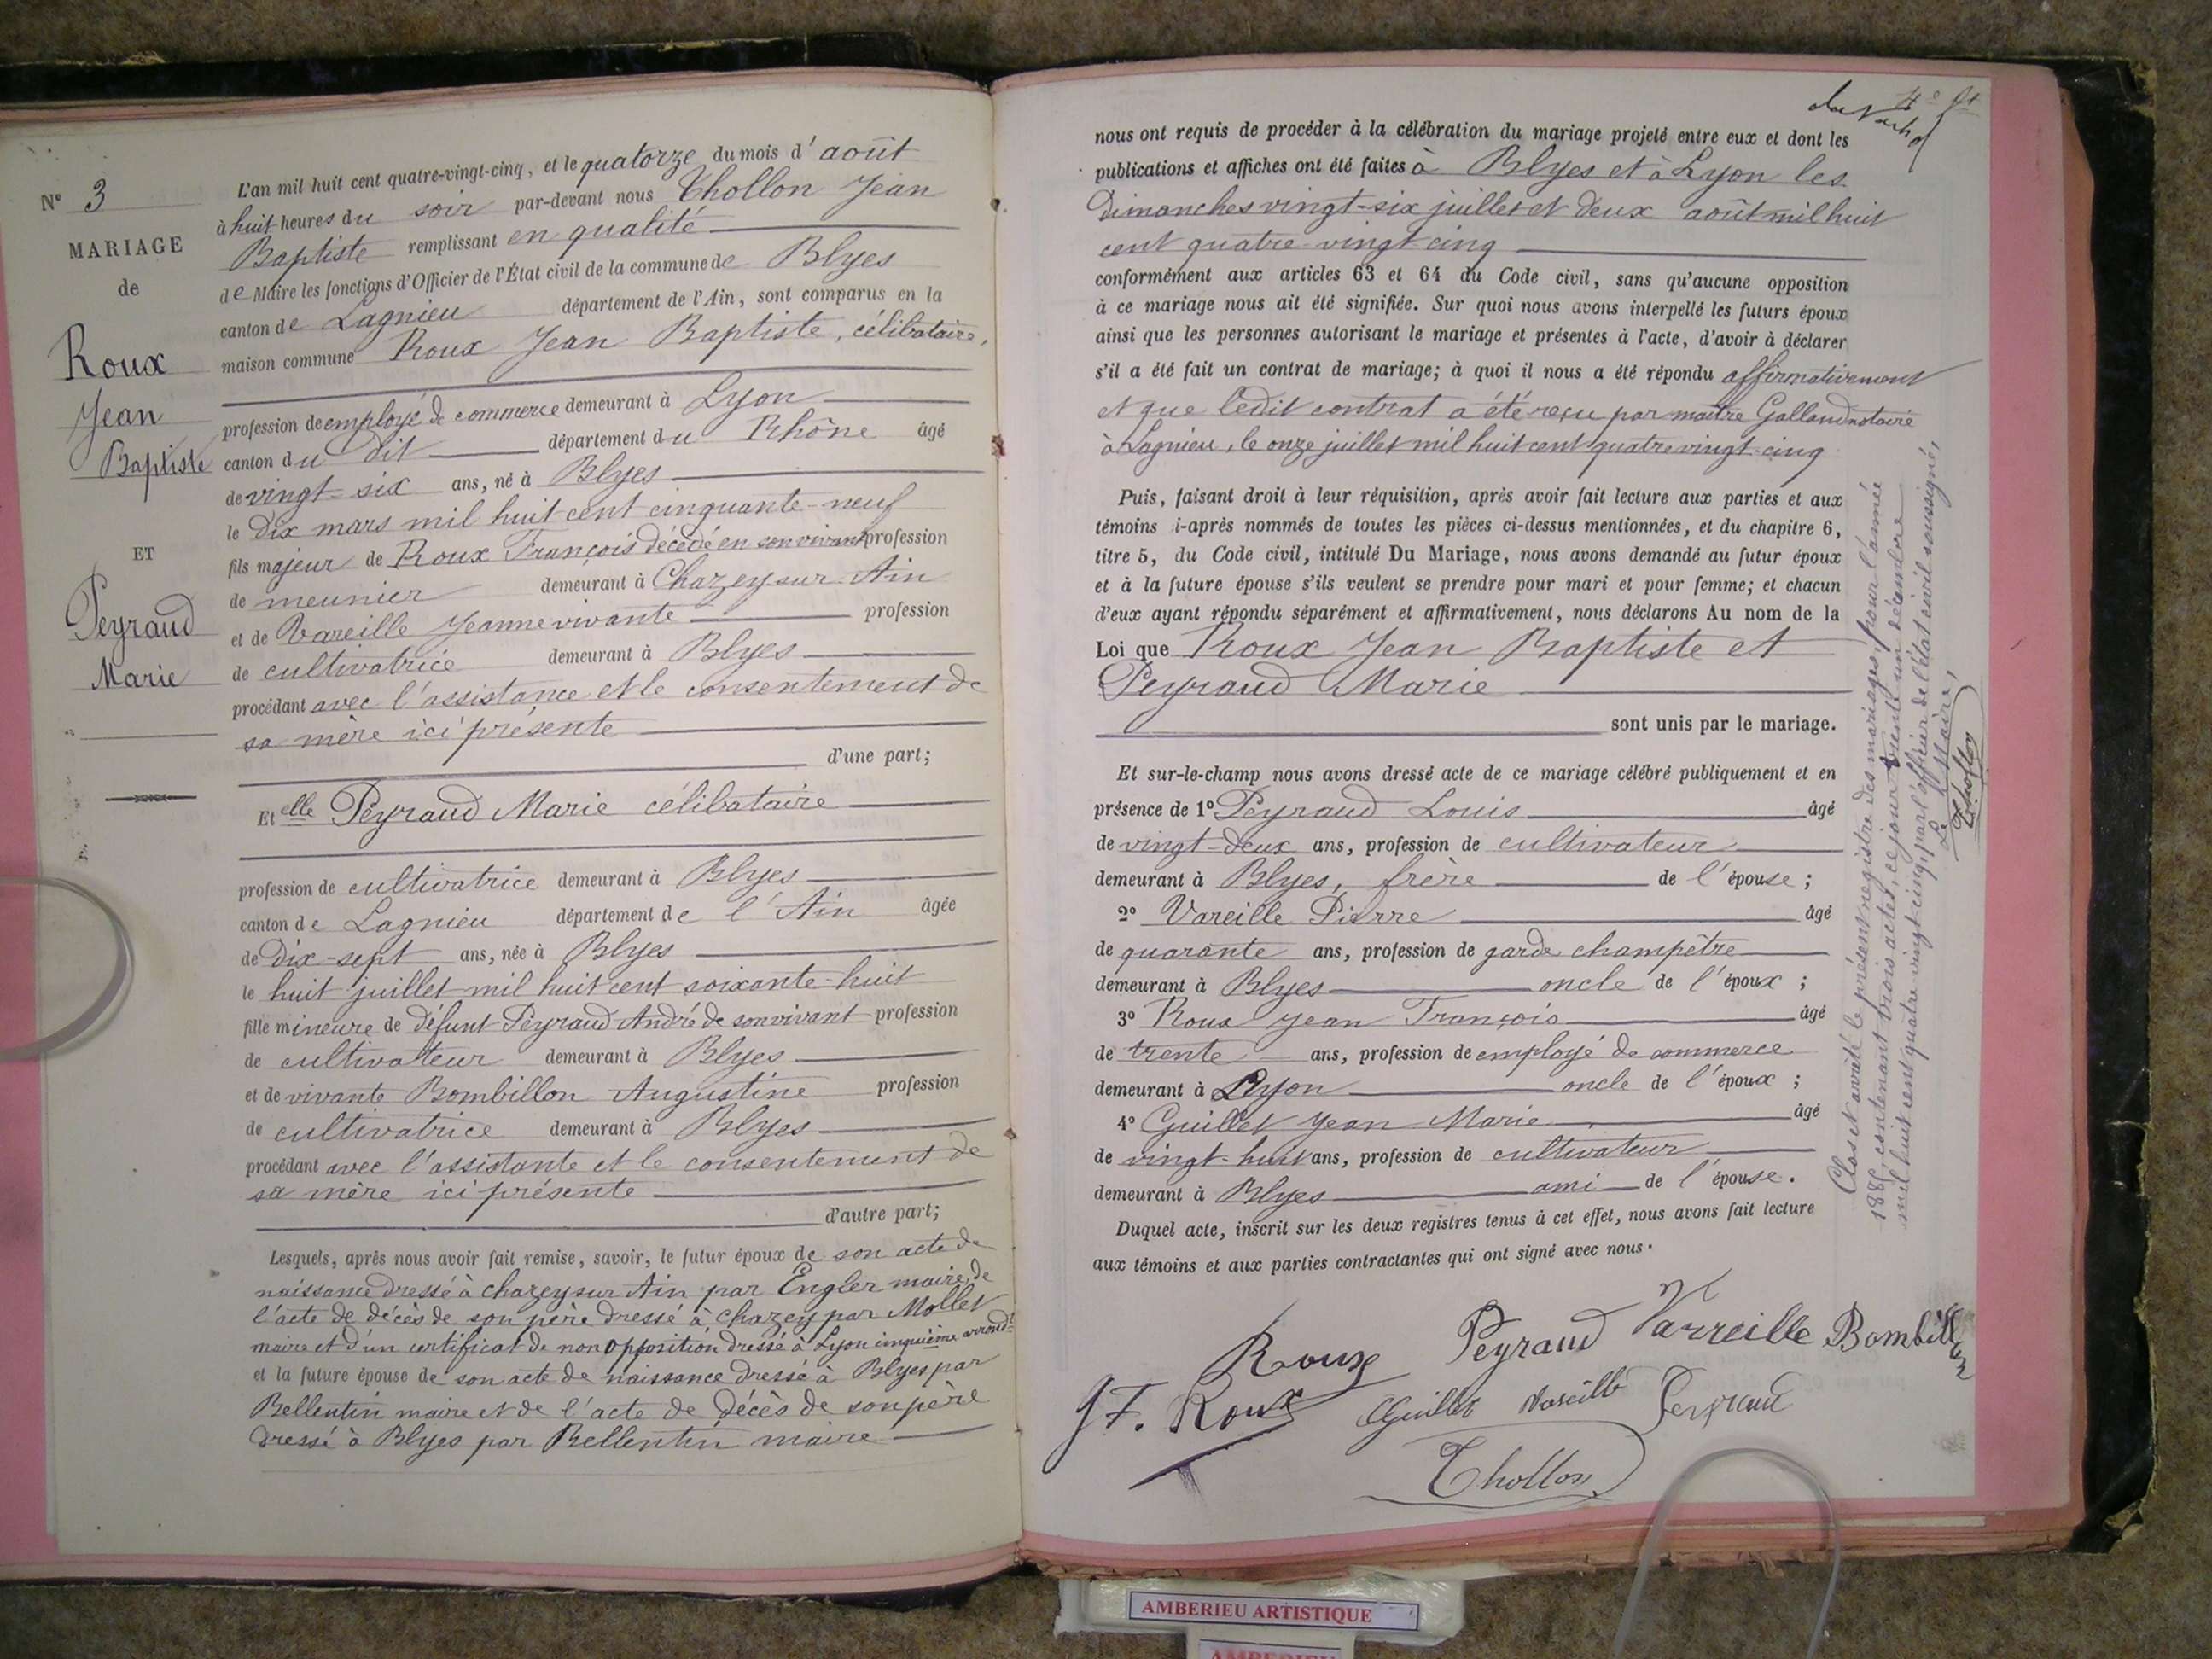 N° 3
MARIAGE
de
Roux
Jean
Baptiste
ET
Peyraud
Marie
L'an mil huit cent quatre-vingt-cinq, et le quatorze du mois d'août
à huit heures du soir par-devant nous Thollon Jean
Baptiste remplissant en qualité
de Maire les fonctions d'Officier de l'État civil de la commune de Blyes
canton de Lagnieu département de l'Ain, sont comparus en la
maison commune Roux Jean Baptiste, célibataire,
profession de employé de commerce demeurant à Lyon
canton du dit département du Rhône âgé
de vingt-six ans, né à Blyes
le dix mars mil huit cent cinquante-neuf
fils majeur de Roux François décédé en son vivant profession
de meunier demeurant à Chazey sur Ain
et de Vareille Jeanne vivante profession
de cultivatrice demeurant à Blyes
procédant avec l'assistance et le consentement de
sa mère ici présente
d'une part;
Et elle Peyraud Marie célibataire
profession de cultivatrice demeurant à Blyes
canton de Lagnieu département de l'Ain âgée
de dix-sept ans, née à Blyes
le huit juillet mil huit cent soixante-huit
fille mineure de défunt Peyraud André de son vivant profession
de cultivateur demeurant à Blyes
et de vivante Bombillon Augustine profession
de cultivatrice demeurant à Blyes
procédant avec l'assistante et le consentement de
sa mère ici présente
d'autre part;
Lesquels, après nous avoir fait remise, savoir, le futur époux de son acte de
naissance dressé à chazey sur Ain par Engler maire, de
l'acte de décès de son père dressé à chazey par Mollet
maire et d'un certificat de non opposition dressé à Lyon cinquième arrondt
et la future épouse de son acte de naissance dressé à Blyes par
Bellentin maire et de l'acte de décès de son père
dressé à Blyes par Bellentin maire
nous ont requis de procéder à la célébration du mariage projeté entre eux et dont les
publications et affiches ont été faites à Blyes et à Lyon les
dimanches vingt-six juillet et deux août mil huit
cent quatre-vingt cinq
conformément aux articles 63 et 64 du Code civil, sans qu'aucune opposition
à ce mariage nous ait été signifiée. Sur quoi nous avons interpellé les futurs époux
ainsi que les personnes autorisant le mariage et présentes à l'acte, d'avoir à déclarer
s'il a été fait un contrat de mariage; à quoi il nous a été répondu affirmativement
et que ledit contrat a été reçu par maître Galland notaire
à Lagnieu, le onze juillet mil huit cent quatre vingt-cinq
Puis, faisant droit à leur réquisition, après avoir fait lecture aux parties et aux
témoins i-après nommés de toutes les pièces ci-dessus mentionnées, et du chapitre 6,
titre 5, du Code civil, intitulé Du Mariage, nous avons demandé au futur époux
et à la future épouse s'ils veulent se prendre pour mari et pour femme; et chacun
d'eux ayant répondu séparément et affirmativement, nous déclarons Au nom de la
Loi que Roux Jean Baptiste et
Peyraud Marie
sont unis par le mariage.
Et sur-le-champ nous avons dressé acte de ce mariage célébré publiquement et en
présence de 1° Peyraud Louis âgé
de vingt-deux ans, profession de cultivateur
demeurant à Blyes, frère de l'épouse;
2° Vareille Pierre âgé
de quarante ans, profession de garde champêtre
demeurant à Blyes oncle de l'époux;
3° Roux Jean François âgé
de trente ans, profession de employé de commerce
demeurant à Lyon oncle de l'époux;
4° Guillet Jean Marie âgé
de vingt-huit ans, profession de cultivateur
demeurant à Blyes ami de l'épouse.
Duquel acte, inscrit sur les deux registres tenus à cet effet, nous avons fait lecture
aux témoins et aux parties contractantes qui ont signé avec nous.
Roux Peyraud Varreille Bombillon
J F. Roux Guillet Vareille Peyraud
Thollon
Clos et arrêté le présent registre des mariages, pour l'année
1885, contenant trois actes, ce jour trente un décembre
mil huit cent quatre vingt-cinq, par l'officier de l'état civil soussigné,
Le Maire,
Thollon
AMBERIEU ARTISTIQUE
AMBERIEU